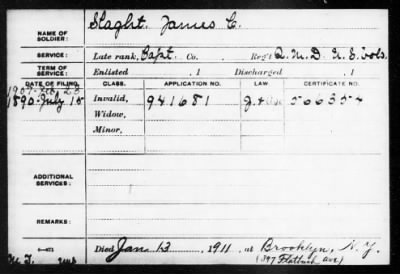 NAME OF SOLDIER: Slaght, James C.
SERVICE: Late rank, Capt. Co. , Reg't Q. M. D. U. S. Vols.
TERM OF SERVICE: Enlisted , 1 Discharged , 1
DATE OF FILING. CLASS. APPLICATION NO. LAW. CERTIFICATE NO.
1907 Feb 23
1890 July 15 Invalid, 941681 566354
Widow,
Minor,
ADDITIONAL SERVICES:
REMARKS:
Died Jan 13, 1911, at Brooklyn, N.Y.
(397 Flatbush ave)